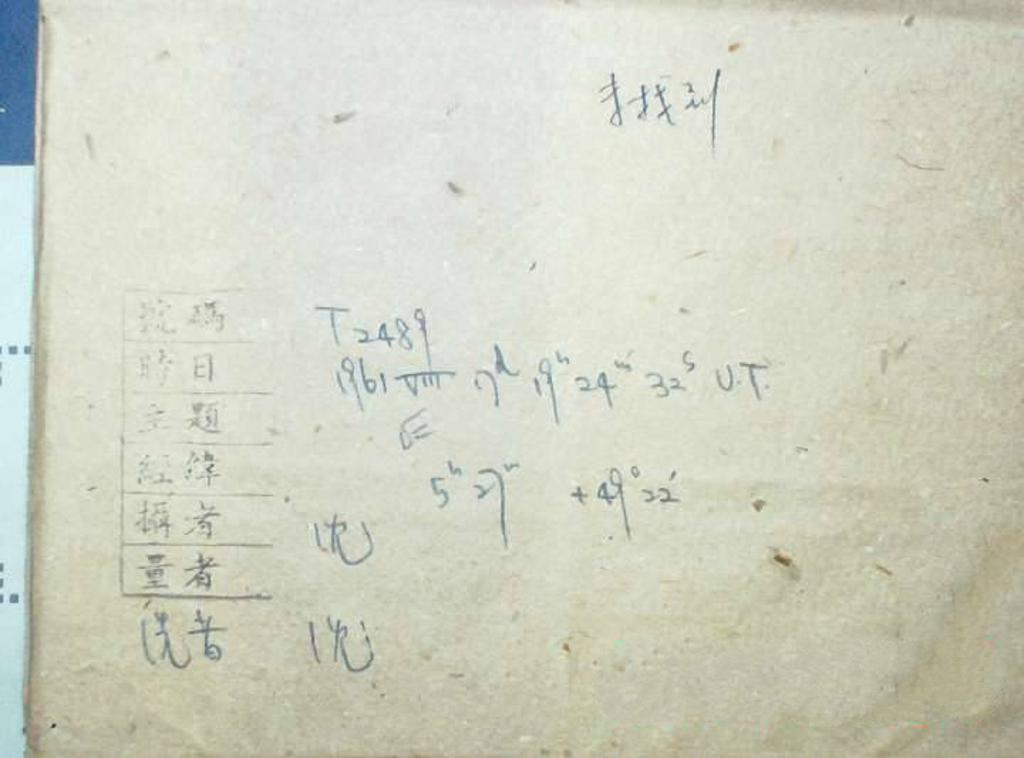 找到
號碼 T2489
時日 1961 VIII 17ᵈ 19ʰ 24ᵐ 32ˢ U.T.
主題
經緯 5ʰ 27ᵐ +49° 22′
攝者 沈
量者
洗者 沈